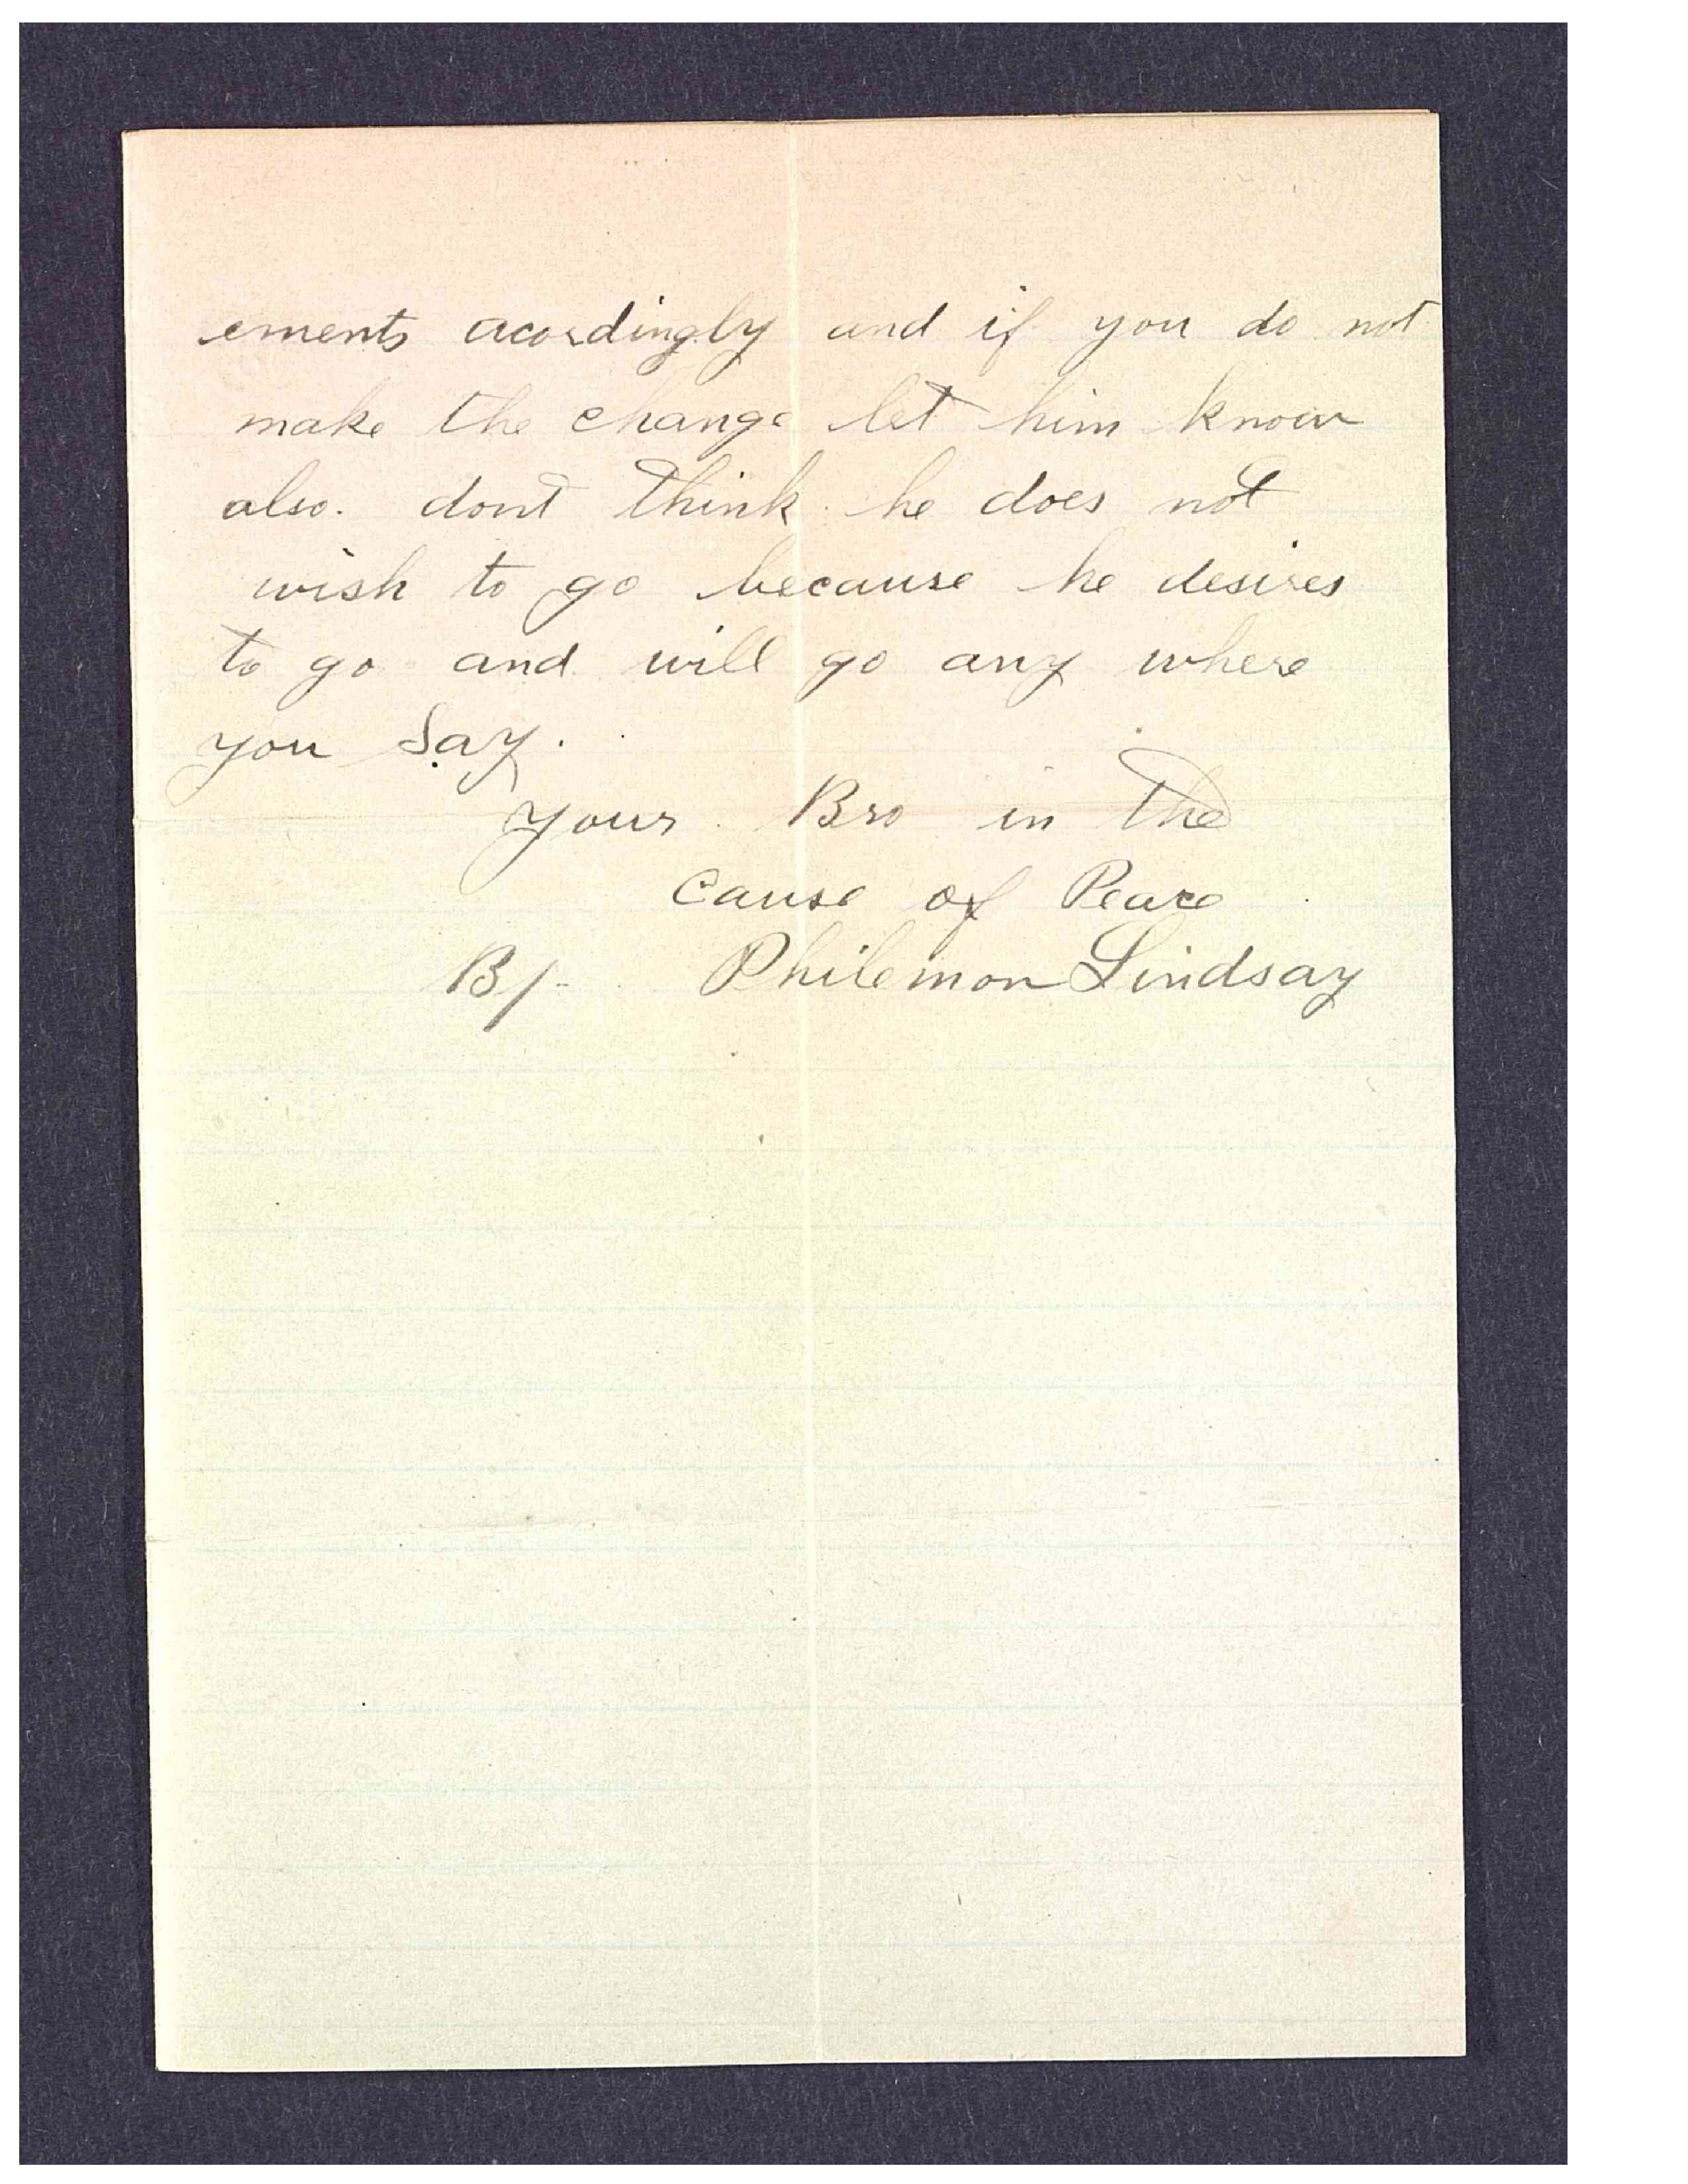 ements acordingly and if you do not
make the change let him know
also. dont think he does not
wish to go because he desires
to go and will go any where
you Say.
Your Bro in the
cause of Peace
B/- Philemon Lindsay